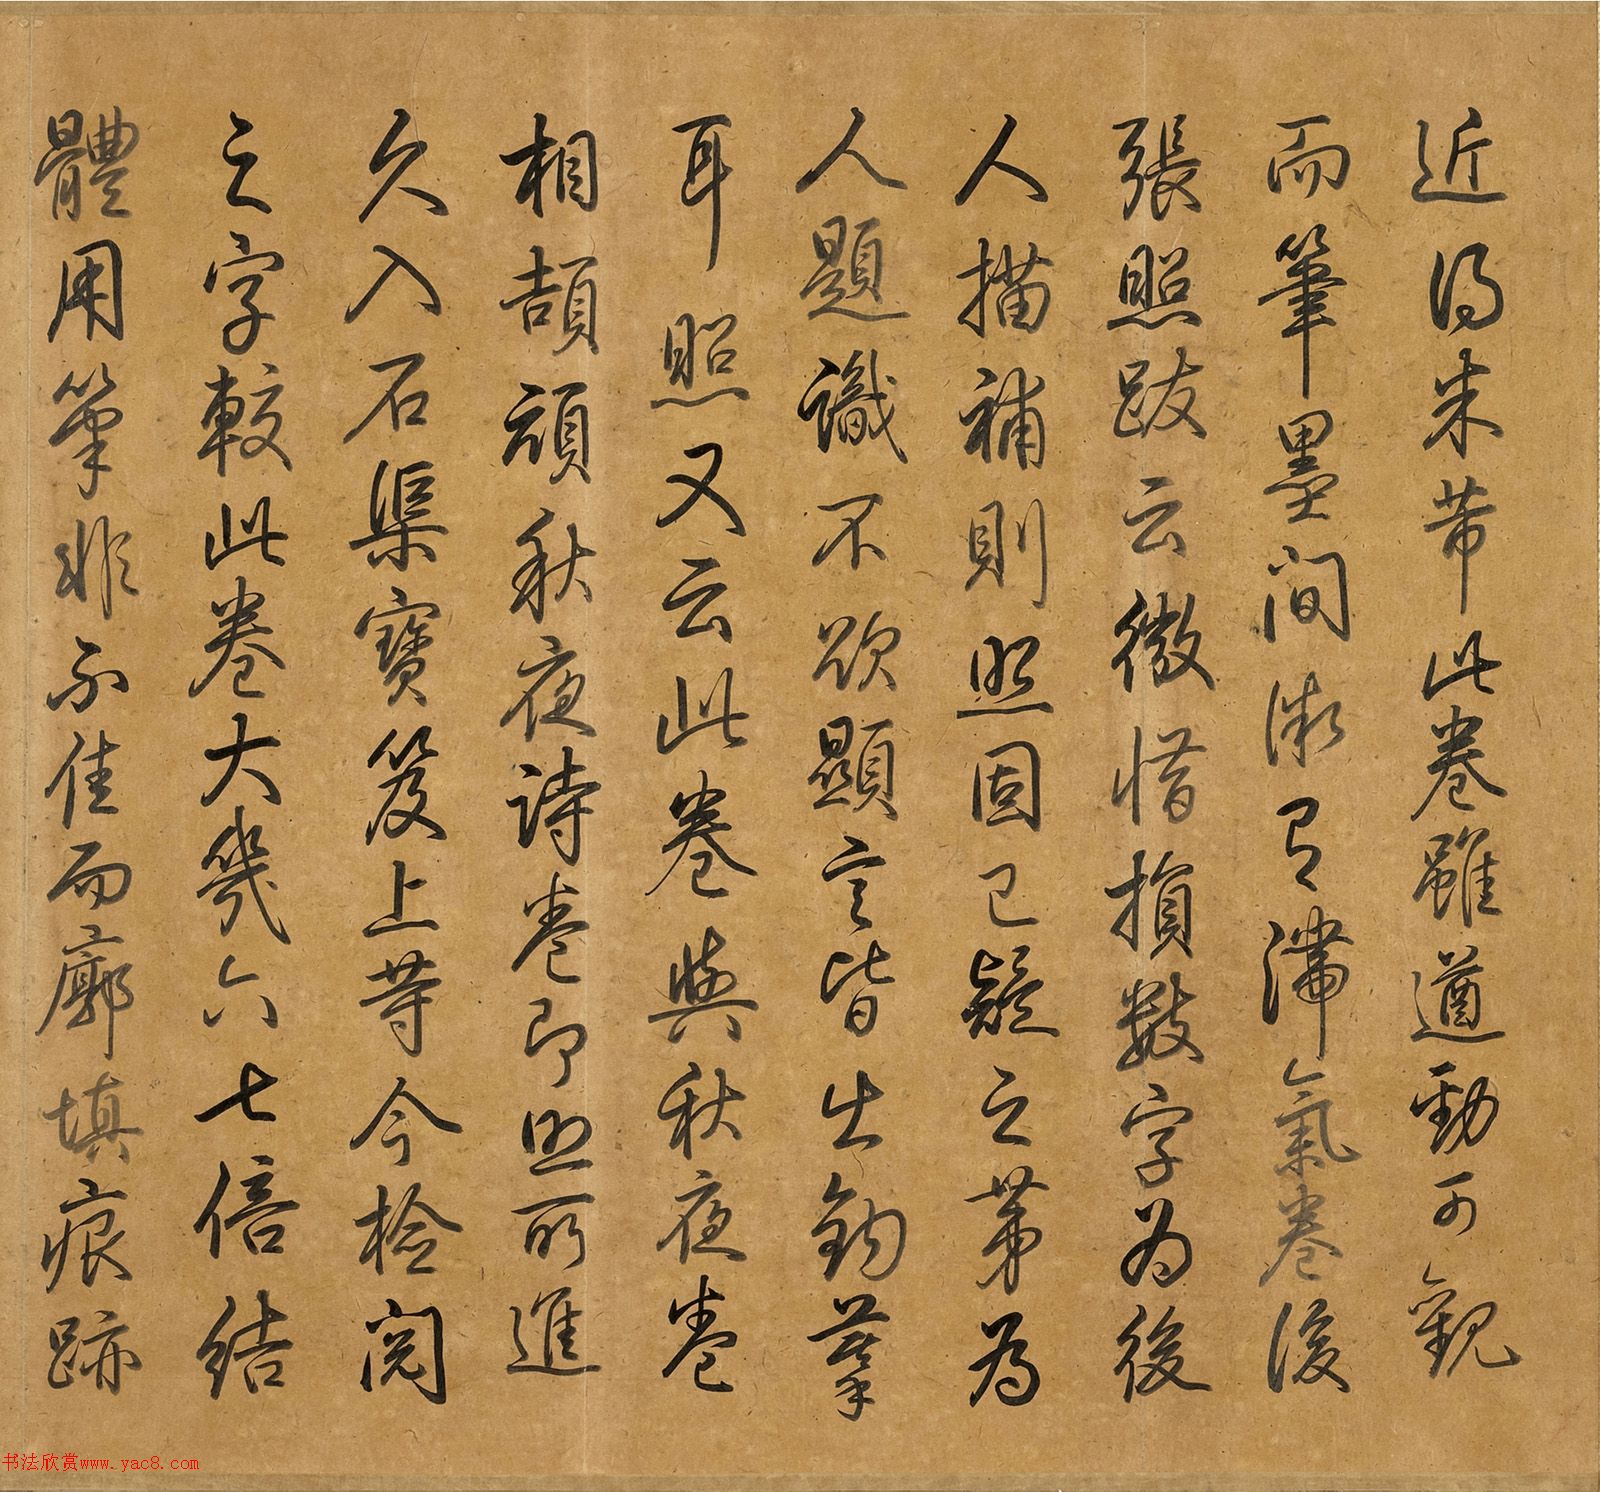 近得米芾此卷雖遒勁可觀
而筆墨間微有滯氣卷後
張照跋云微惜損數字為後
人描補則照固已疑之第為
人題識不欲顯言皆出鈎摹
耳照又云此卷與秋夜卷
相頡頏秋夜詩卷即照所進
久入石渠寶笈上等今檢閱
之字較此卷大幾六七倍結
體用筆非不佳而廓填痕跡
书法欣赏www.yac8.com